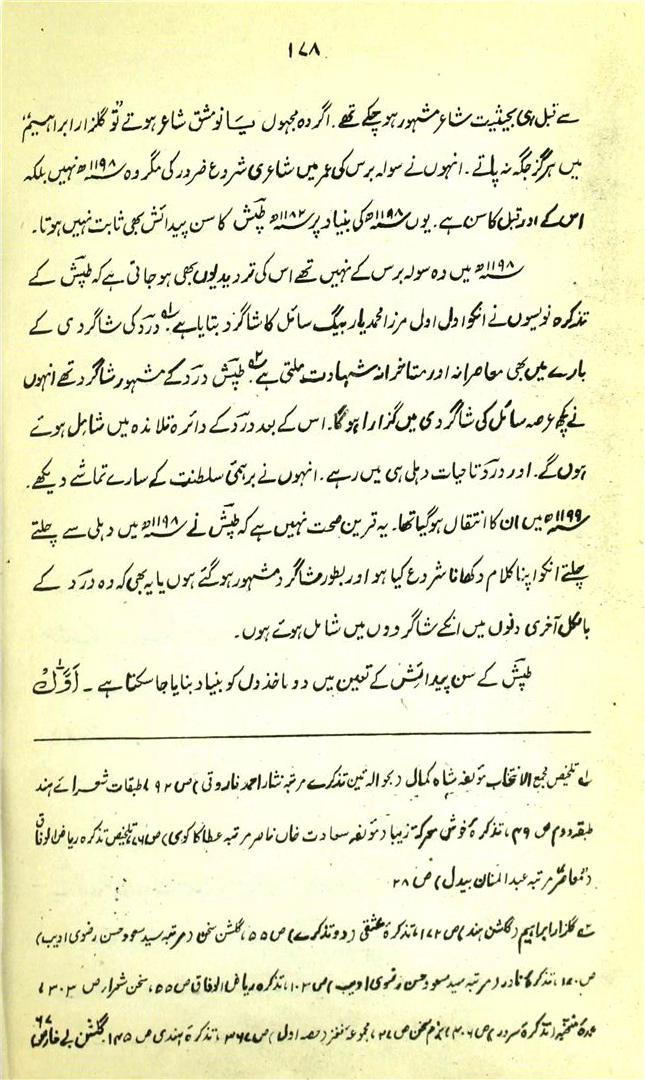 ۱۷۸
سے قبل ہی بحیثیت شاعر مشہور ہو چکے تھے۔ اگر وہ مجہول یا نو مشق شاعر ہوتے تو گلزار ابراہیم
میں ہرگز جگہ نہ پاتے۔ انہوں نے سولہ برس کی عمر میں شاعری شروع ضرور کی مگر وہ ۱۱۹۸ھ نہیں بلکہ
اس کے اور قبل کا سن ہے۔ یوں ۱۱۹۸ھ کی بنیاد پر ۱۱۸۲ھ طپش کا سن پیدائش بھی ثابت نہیں ہوتا۔
۱۱۹۸ھ میں وہ سولہ برس کے نہیں تھے اس کی تردید یوں بھی ہو جاتی ہے کہ طپش کے
تذکرہ نویسوں نے انکو اول اول مرزا محمد یار بیگ سائل کا شاگرد بتایا ہے۔ درد کی شاگردی کے
بارے میں بھی معاصرانہ اور متاخرانہ شہادت ملتی ہے۔ طپش درد کے مشہور شاگرد تھے انہوں
نے کچھ عرصہ سائل کی شاگردی میں گزارا ہو گا۔ اس کے بعد درد کے دائرہ تلامذہ میں شامل ہوئے
ہوں گے۔ اور درد تاحیات دہلی ہی میں رہے۔ انہوں نے برہمیٔ سلطنت کے سارے تماشے دیکھے۔
۱۱۹۹ھ میں ان کا انتقال ہو گیا تھا۔ یہ قرین صحت نہیں ہے کہ طپش نے ۱۱۹۸ھ میں دہلی سے چلتے
چلتے انکو اپنا کلام دکھانا شروع کیا ہو اور بطور شاگرد مشہور ہو گئے ہوں یا یہ بھی کہ وہ درد کے
بالکل آخری دنوں میں انکے شاگردوں میں شامل ہوئے ہوں۔
طپش کے سن پیدائش کے تعین میں دو ماخذوں کو بنیاد بنایا جا سکتا ہے ۔ اول
۱ تلخیص مجمع الانتخاب مؤلفہ شاہ کمال (بحوالہ تین تذکرے مرتبہ نثار احمد فاروقی) ص ۹۲، طبقات شعرائے ہند
طبقہ دوم ص ۴۹، تذکرۂ خوش معرکہ زیبا (مؤلفہ سعادت خاں ناصر مرتبہ عطا کاکوی) ص ۷۶، تلخیص تذکرہ ریاض الوفاق
(معاصر مرتبہ عبد المنان بیدل) ص ۲۸
۲ گلزار ابراہیم (گلشن ہند) ص ۱۷۲، تذکرۂ عشقی (دو تذکرے) ص ۵۵، گلشن سخن (مرتبہ سید مسعود حسن رضوی ادیب)
ص ۱۷۰، تذکرۂ نادر (مرتبہ سید مسعود حسن رضوی ادیب) ص ۱۰۲، تذکرہ ریاض الوفاق ص ۵۵، سخن شعرا ص ۳۰۳،
عمدۂ منتخبہ (تذکرۂ سرور) ص ۴۰۶، بزم سخن ص ۷۷، مجموعہ نغز (حصہ اول) ص ۳۶۷، تذکرۂ ہندی ص ۱۴۵، گلشن بے خار ص ۶۷